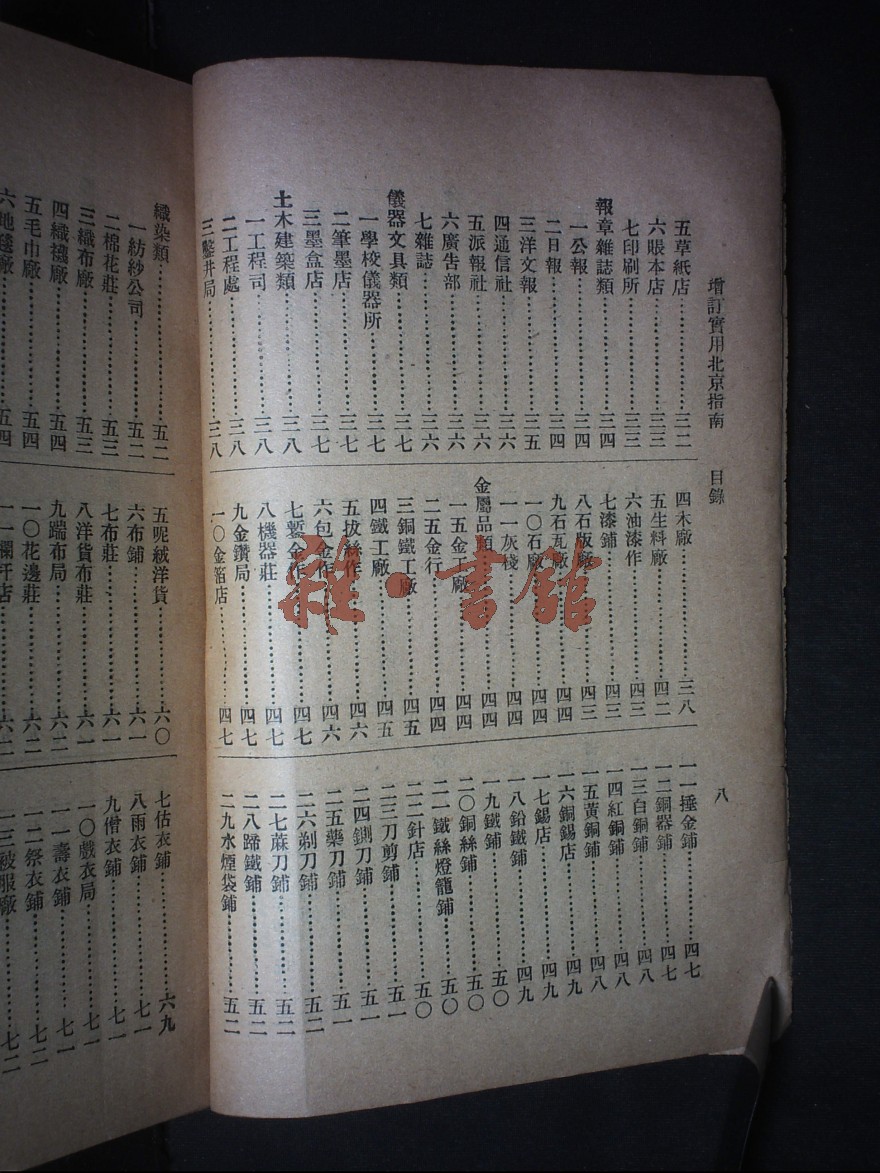 增訂實用北京指南 目錄 八
五草紙店…………三二
六賬本店…………三三
七印刷所…………三三
報章雜誌類…………三四
一公報…………三四
二日報…………三四
三洋文報…………三五
四通信社…………三六
五派報社…………三六
六廣告部…………三六
七雜誌…………三六
儀器文具類…………三七
一學校儀器所…………三七
二筆墨店…………三七
三墨盒店…………三七
土木建築類…………三八
一工程司…………三八
二工程處…………三八
三鑿井局…………三八
四木廠…………三八
五生料廠…………四二
六油漆作…………四三
七漆鋪…………四三
八石版廠…………四三
九石瓦廠…………四四
一〇石廠…………四四
一一灰棧…………四四
金屬品類…………四四
一五金工廠…………四四
二五金行…………四四
三銅鐵工廠…………四五
四鐵工廠…………四五
五拔絲作…………四六
六包金作…………四六
七鏨金作…………四七
八機器莊…………四七
九金鑽局…………四七
一〇金箔店…………四七
一一捶金鋪…………四七
一二銅器鋪…………四七
一三白銅鋪…………四八
一四紅銅鋪…………四八
一五黃銅鋪…………四八
一六銅錫店…………四九
一七錫店…………四九
一八鉛鐵鋪…………四九
一九鐵鋪…………五〇
二〇銅絲鋪…………五〇
二一鐵絲燈籠鋪…………五〇
二二針店…………五〇
二三刀剪鋪…………五一
二四鍘刀鋪…………五一
二五藥刀鋪…………五一
二六剃刀鋪…………五二
二七蔴刀鋪…………五二
二八蹄鐵鋪…………五二
二九水煙袋鋪…………五二
織染類…………五二
一紡紗公司…………五二
二棉花莊…………五三
三織布廠…………五三
四織襪廠…………五四
五毛巾廠…………五四
六地毯廠…………五四
五呢絨洋貨…………六〇
六布鋪…………六一
七布莊…………六一
八洋貨布莊…………六一
九踹布局…………六二
一〇花邊莊…………六二
一一欄杆店…………六二
七估衣鋪…………六九
八雨衣鋪…………七一
九僧衣鋪…………七一
一〇戲衣局…………七一
一一壽衣鋪…………七一
一二祭衣鋪…………七二
一三被服廠…………七二
雜·書館